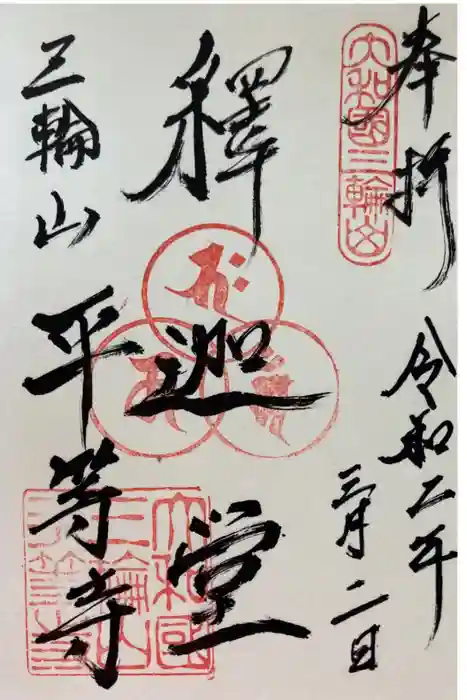 奉拝
大和國三輪山
令和二年
三月二日
釋迦堂
三輪山
平等寺
大和國
三輪山
平等寺